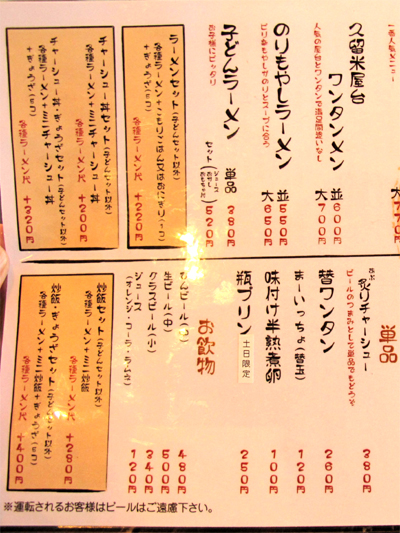 一番人気メニュー
大770円
久留米屋台
ワンタンメン
人気の屋台とワンタンで満足間違いなし
並600円
大700円
のりもやしラーメン
ピリ辛もやしがのりとスープに合う
並550円
大650円
子どんラーメン
お子様にピッタリ
単品 380円
セット(ジュース おにぎり おもちゃ付) 520円
ラーメンセット(子どんセット以外)
各種ラーメン+こどりごはん又はおにぎり(1コ)
+ぎょうざ(5コ)
各種ラーメン代 +220円
チャーシュー丼セット(子どんセット以外)
各種ラーメン+ミニチャーシュー丼
各種ラーメン代 +200円
チャーシュー丼・ぎょうざセット(子どんセット以外)
各種ラーメン+ミニチャーシュー丼
+ぎょうざ(5コ)
各種ラーメン代 +320円
単品
炙りチャーシュー
ビールのつまみとして単品でもどうぞ
380円
替ワンタン 260円
まーいっちょ(替玉) 120円
味付け半熟煮卵 100円
瓶プリン 土日限定 250円
お飲物
びんビール(中) 480円
生ビール(中) 500円
グラスビール(小) 340円
ジュース 120円
(オレンジ・コーラ・ラムネ)
炒飯セット(子どんセット以外)
各種ラーメン+ミニ炒飯
各種ラーメン代 +280円
炒飯・ぎょうざセット(子どんセット以外)
各種ラーメン+ミニ炒飯+ぎょうざ(5コ)
各種ラーメン代 +400円
※運転されるお客様はビールはご遠慮下さい。